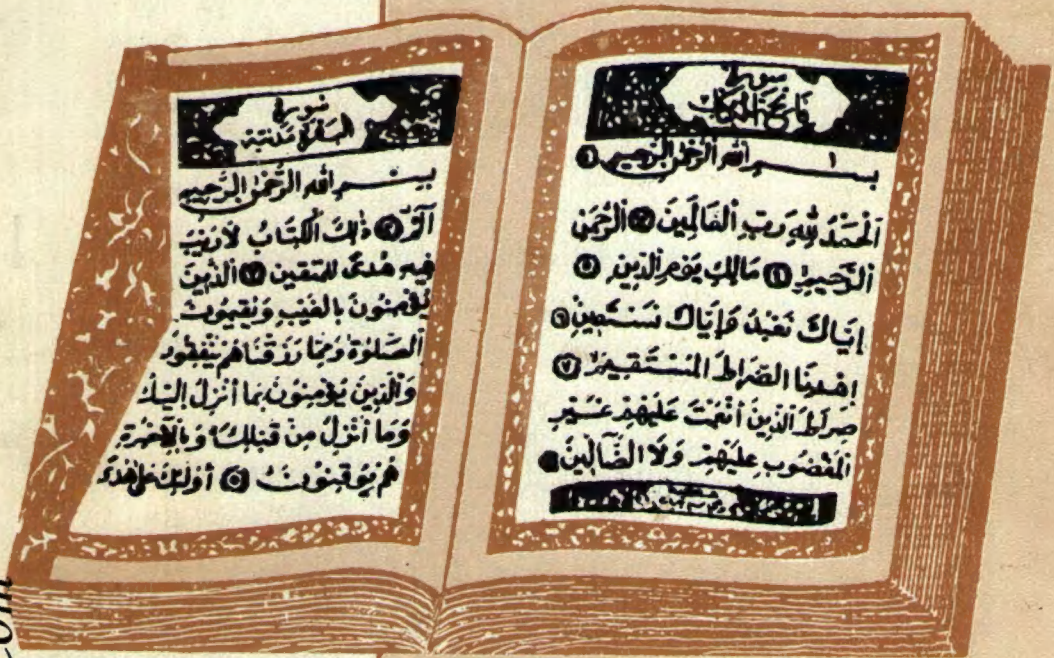 سورة
فاتحة الكتاب
بسم الله الرحمن الرحيم ١
الحمد لله رب العالمين ٢ الرحمن
الرحيم مالك يوم الدين
إياك نعبد وإياك نستعين
اهدنا الصراط المستقيم
صراط الذين أنعمت عليهم غير
المغضوب عليهم ولا الضالين
سورة
البقرة مدنية
بسم الله الرحمن الرحيم
ذلك الكتاب لا ريب
فيه هدى للمتقين الذين
يؤمنون بالغيب ويقيمون
الصلوة ومما رزقناهم ينفقون
والذين يؤمنون بما أنزل إليك
وما أنزل من قبلك وبالآخرة
هم يوقنون أولئك على هدى
com